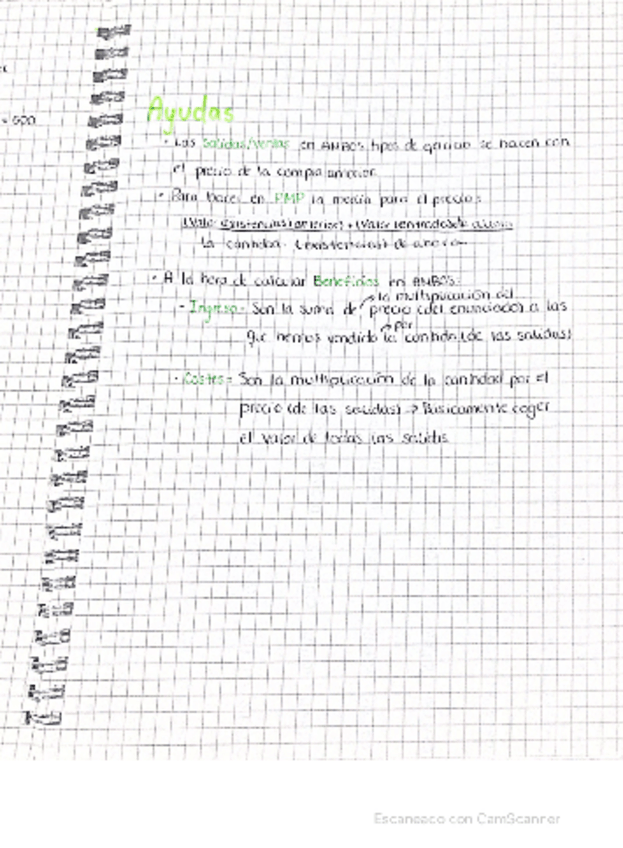 = 600
Ayudas
· Las Salidas/Ventas en AMBOS tipos de ejercicio se hacen con
el precio de la compra anterior.
· Para hacer en PMP la media para el precio:
(Valor existencias anterior) + (Valor entradas de ahora)
la cantidad (existencias) de ahora
· A la hora de calcular Beneficios en AMBOS:
la multiplicación del
- Ingreso - Son la suma de precio (del enunciado) a las
por
que hemos vendido la cantidad (de las salidas)
- Costes - Son la multiplicación de la cantidad por el
precio (de las salidas) -> Básicamente coger
el valor de todas las salidas
Escaneado con CamScanner